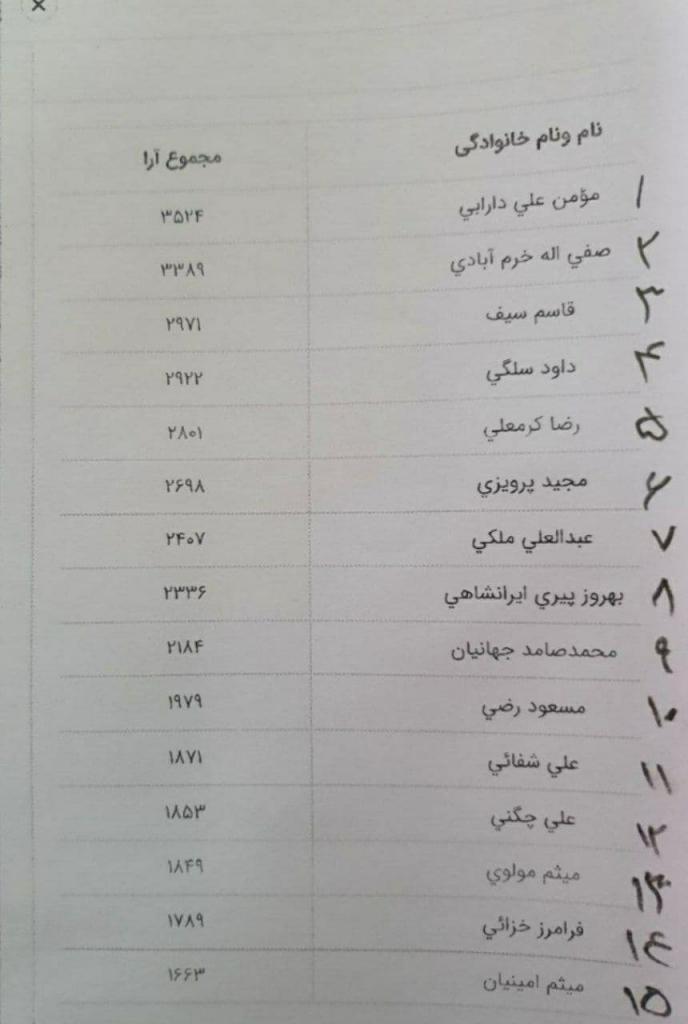 نام ونام خانوادگی مجموع آرا
۱ مؤمن علي دارابي ۳۵۲۴
۲ صفي اله خرم آبادي ۳۳۸۹
۳ قاسم سيف ۲۹۷۱
۴ داود سلگي ۲۹۲۲
۵ رضا کرمعلي ۲۸۰۱
۶ مجيد پرويزي ۲۶۹۸
۷ عبدالعلي ملکي ۲۴۰۷
۸ بهروز پيري ايرانشاهي ۲۳۳۶
۹ محمدصامد جهانيان ۲۱۸۴
۱۰ مسعود رضي ۱۹۷۹
۱۱ علي شفائي ۱۸۷۱
۱۲ علي چگني ۱۸۵۳
۱۳ ميثم مولوي ۱۸۴۹
۱۴ فرامرز خزائي ۱۷۸۹
۱۵ ميثم امينيان ۱۶۶۳